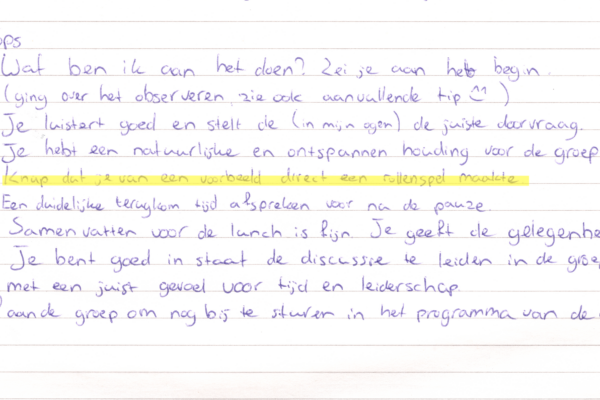 ops
Wat ben ik aan het doen? Zei je aan het begin.
(ging over het observeren, zie ook aanvullende tip )
Je luistert goed en stelt de (in mijn ogen) de juiste doorvraag.
Je hebt een natuurlijke en ontspannen houding voor de groep
Knap dat je van een voorbeeld direct een rollenspel maakte
Een duidelijke terugkom tijd afspreken voor na de pauze.
Samenvatten voor de lunch is fijn. Je geeft de gelegenhe
Je bent goed in staat de discussie te leiden in de groe
met een juist gevoel voor tijd en leiderschap.
aan de groep om nog bij te sturen in het programma van de